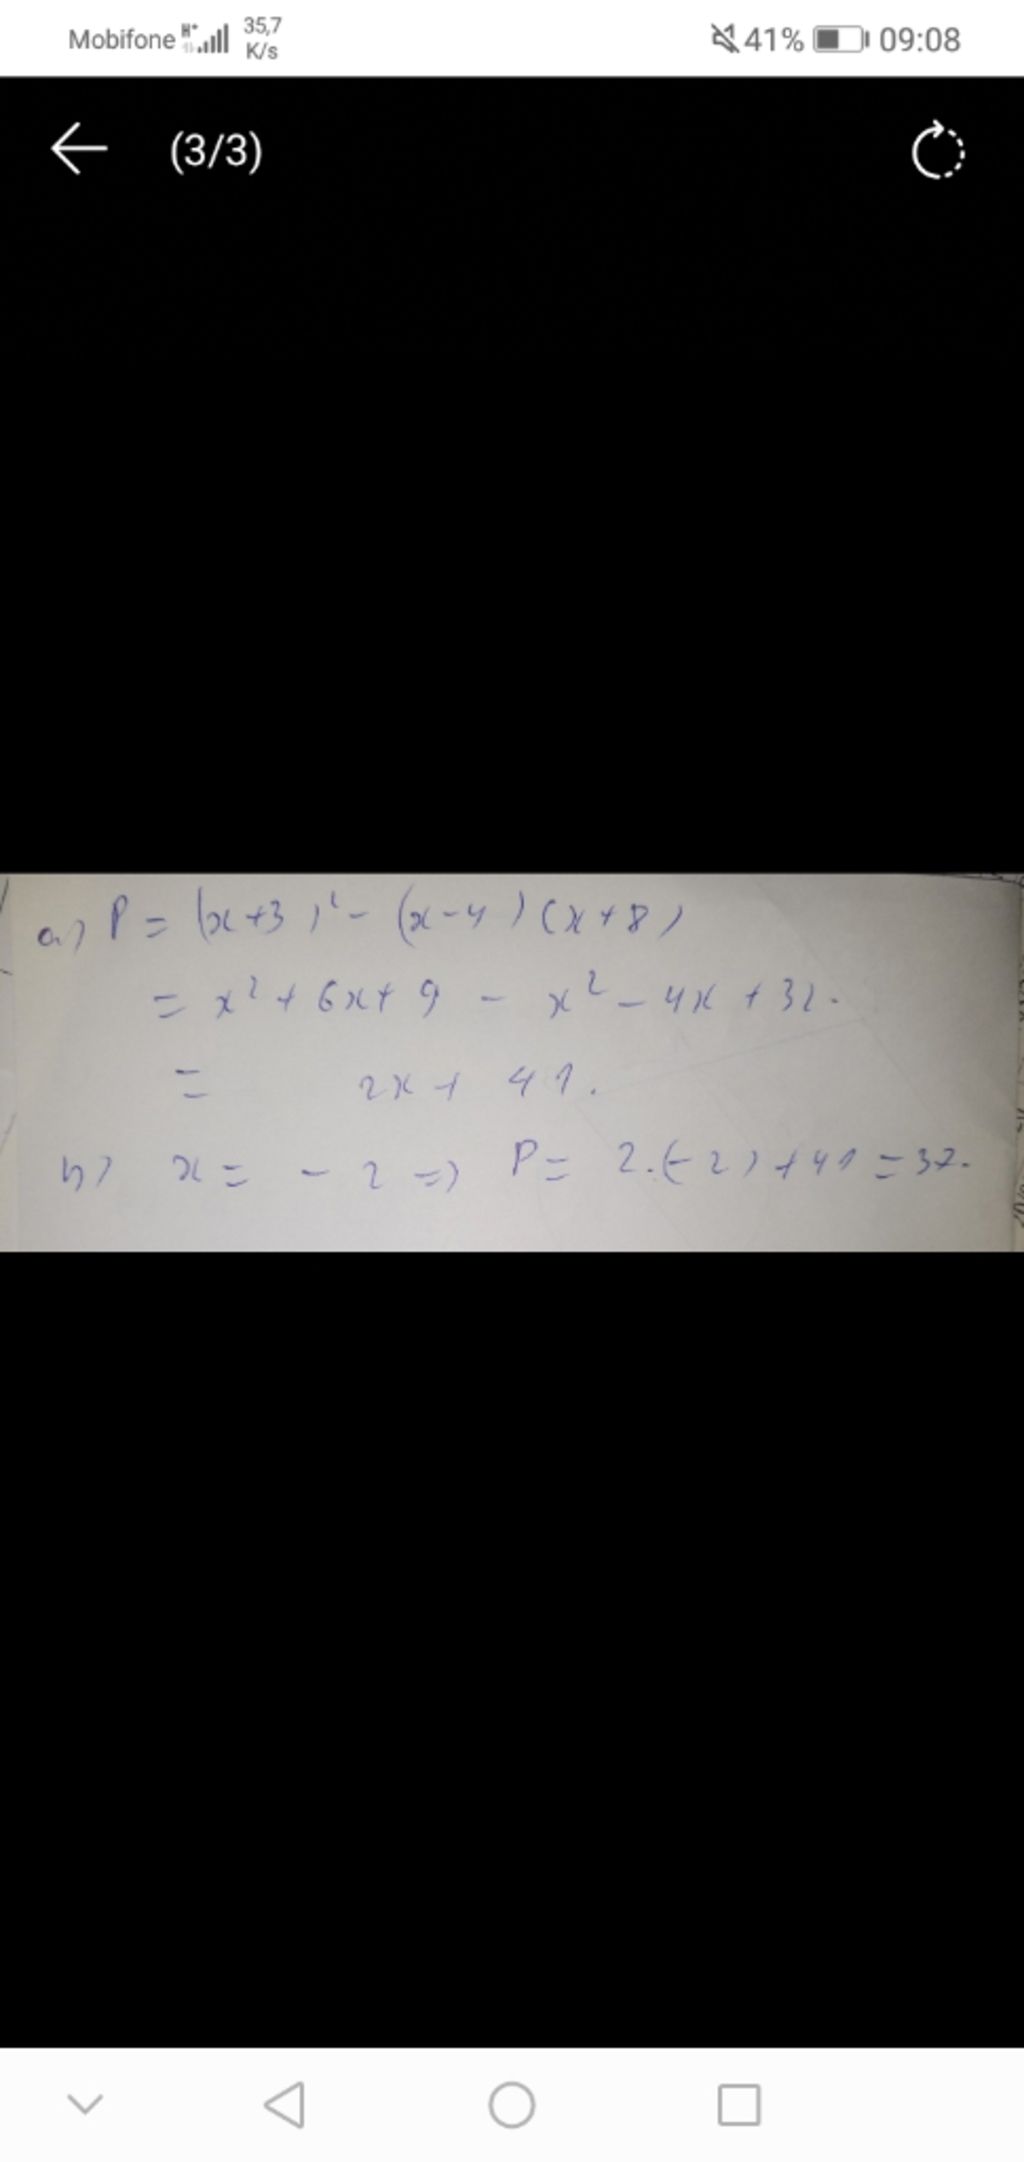 Mobifone H+ 35,7 K/s 41% 09:08
(3/3)
a) P = (x+3)² - (x-4)(x+8)
= x² + 6x + 9 - x² - 4x + 32.
= 2x + 41.
b) x = - 2 => P = 2.(-2) + 41 = 37.